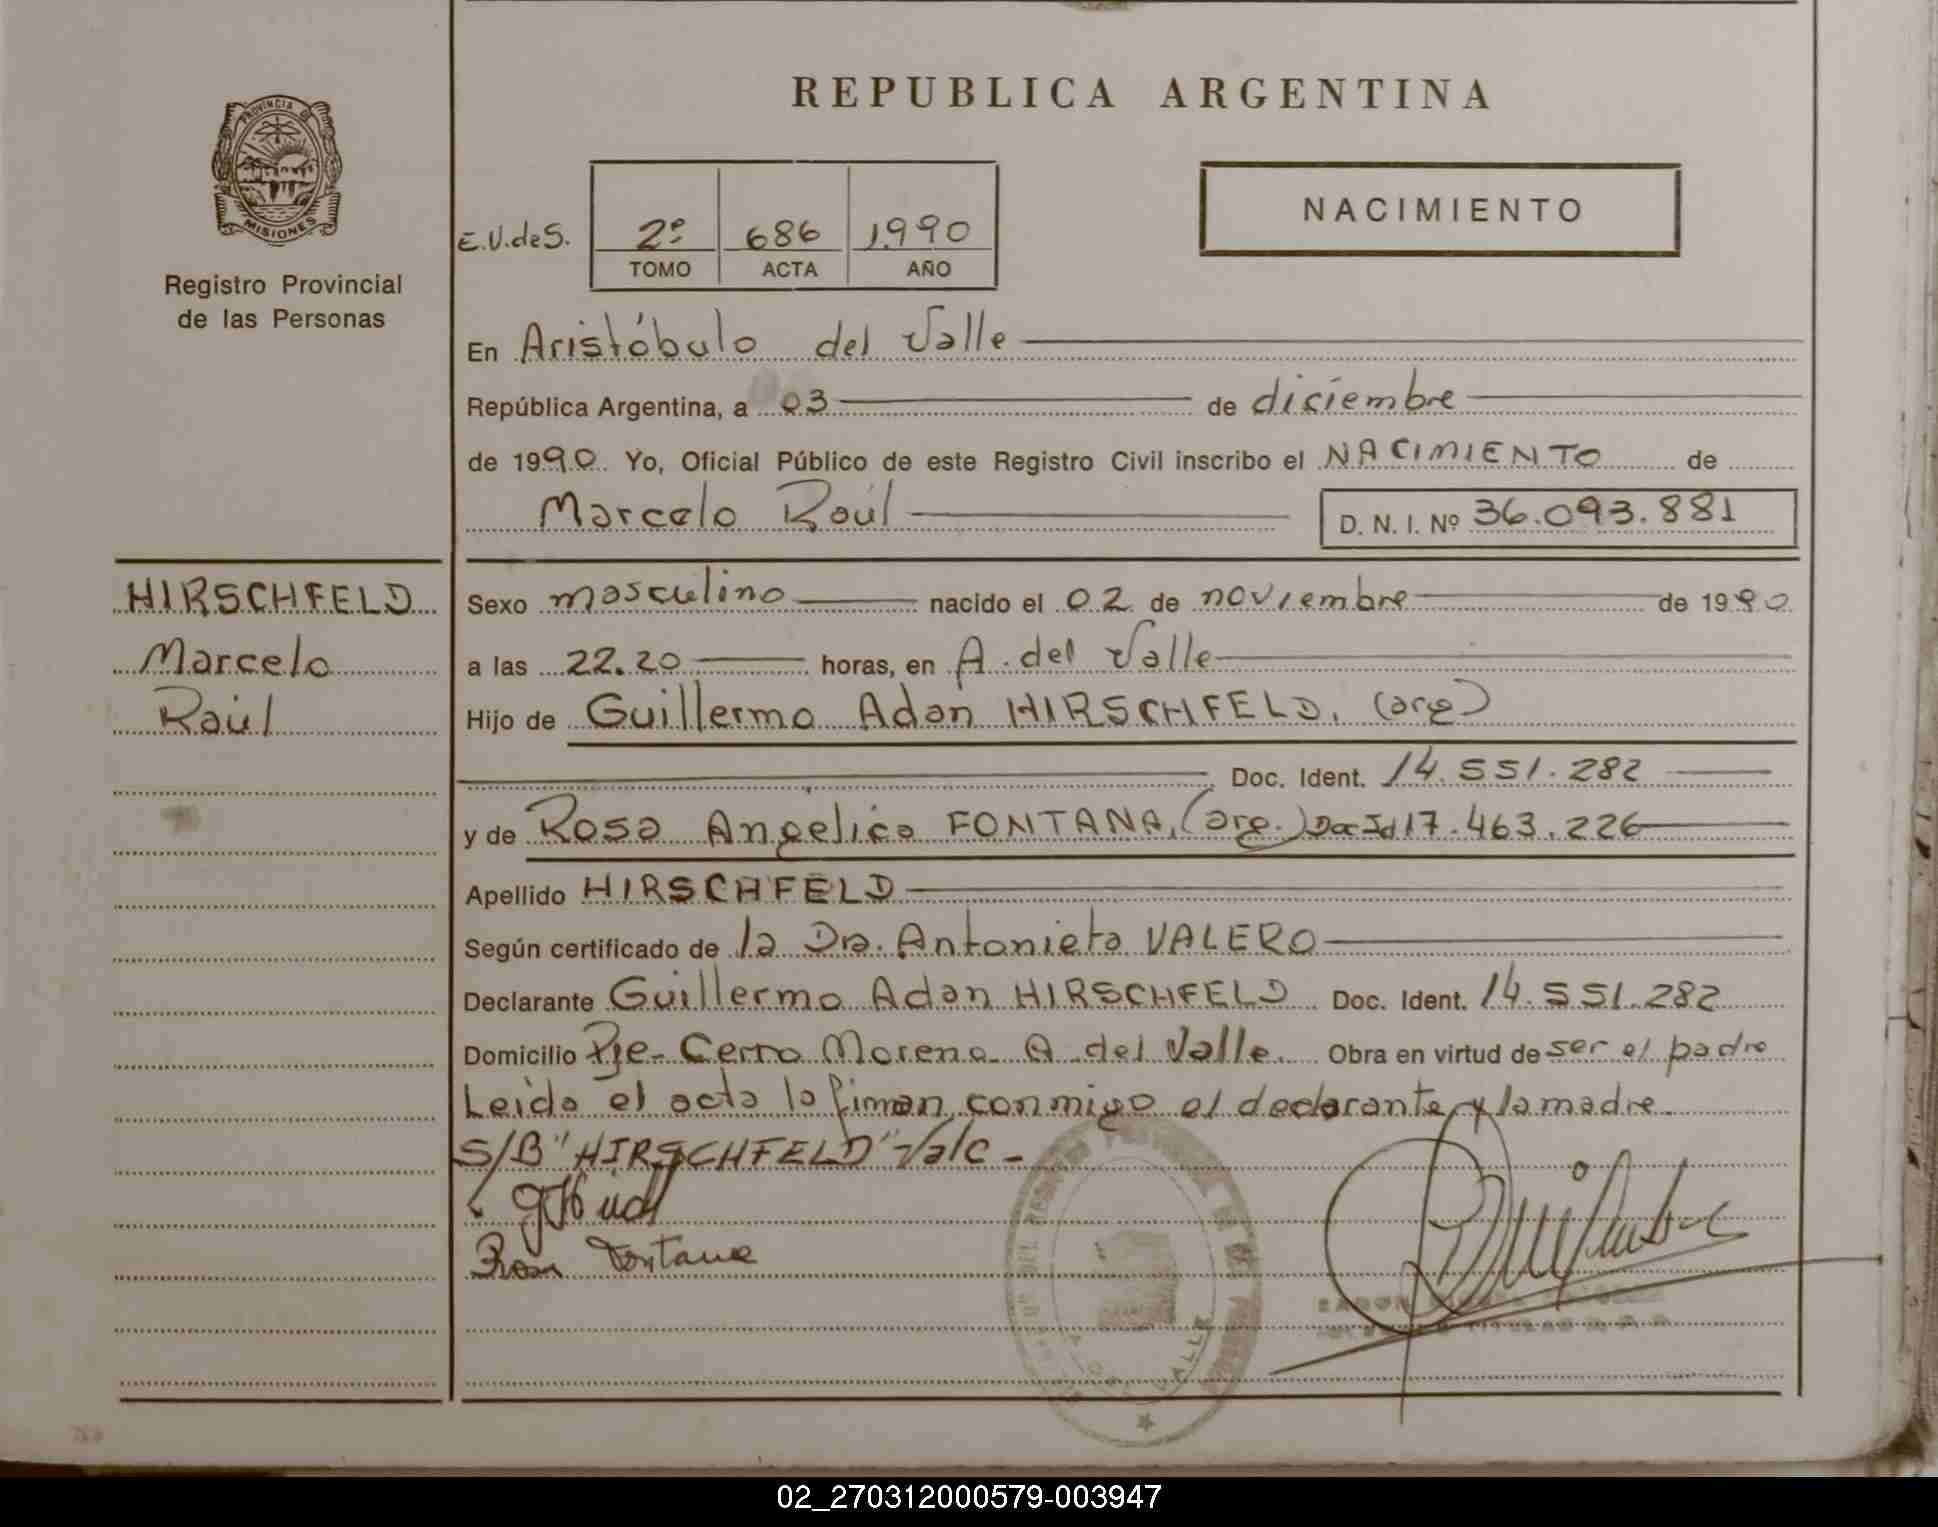 REPUBLICA ARGENTINA
PROVINCIA
MISIONES
Registro Provincial
de las Personas
NACIMIENTO
E.U.deS.
2º 686 1990
TOMO ACTA AÑO
En Aristóbulo del Valle
República Argentina, a 03 de diciembre
de 1990. Yo, Oficial Público de este Registro Civil inscribo el NACIMIENTO de
Marcelo Raúl D. N. I. Nº 36.093.881
HIRSCHFELD
Marcelo
Raúl
Sexo masculino nacido el 02 de noviembre de 1990
a las 22.20 horas, en A. del Valle
Hijo de Guillermo Adan HIRSCHFELD, (arg)
Doc. Ident. 14.551.282
y de Rosa Angelica FONTANA, (arg.) Doc Id 17.463.226
Apellido HIRSCHFELD
Según certificado de la Dra. Antonieta VALERO
Declarante Guillermo Adan HIRSCHFELD Doc. Ident. 14.551.282
Domicilio Pje- Cerro Moreno- A del Valle. Obra en virtud de ser el padre
Leida el acta la fiman conmigo el declarante y la madre.
S/B "HIRSCHFELD" Vale -
Rosa Fontana
VALLE
02_270312000579-003947